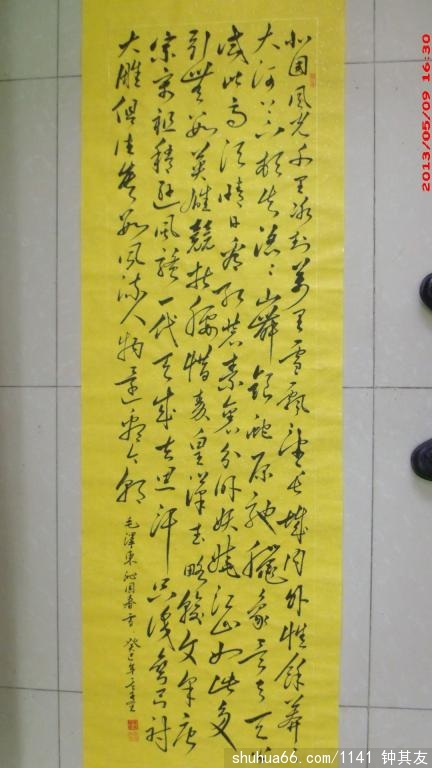 北国風光千里冰封萬里雪飄望長城内外惟餘莽莽
大河上下頓失滔滔山舞銀蛇原馳臘象欲与天公
試比高須晴日看红装素裹分外妖娆江山如此多
引無数英雄競折腰惜秦皇漢武略輸文采唐
宗宋祖稍逊風骚一代天成吉思汗只识弯弓射
大雕俱往矣数風流人物還看今朝
毛澤東沁園春雪 癸巳年
2013/05/09 16:30
shuhua66.com/1141 钟其友